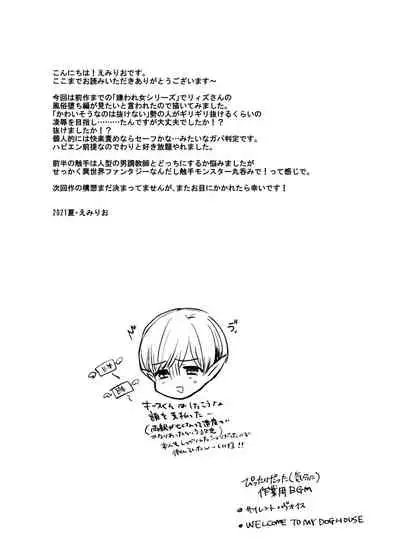 こんにちは！えみりおです。
ここまでお読みいただきありがとうございます～
今回は前作までの「嫌われ女シリーズ」でリィズさんの
風俗堕ち編が見たいと言われたので描いてみました。
「かわいそうなのは抜けない」勢の人がギリギリ抜けるくらいの
凌辱を目指し………たんですが大丈夫でしたか！？
抜けましたか！？
個人的には快楽責めならセーフかな…みたいなガバ判定です。
ハピエン前提なのでわりと好き放題やれました。
前半の触手は人型の男調教師とどっちにするか悩みましたが
せっかく異世界ファンタジーなんだし触手モンスター丸呑みで！って感じで。
次回作の構想まだ決まってませんが、またお目にかかれたら幸いです！
2021夏・えみりお
キースくんはけっこうな
額を支払った
ぴったりだった(気分に)
作業用BGM
・サイレント・ヴォイス
・WELCOME TO MY DOGHOUSE